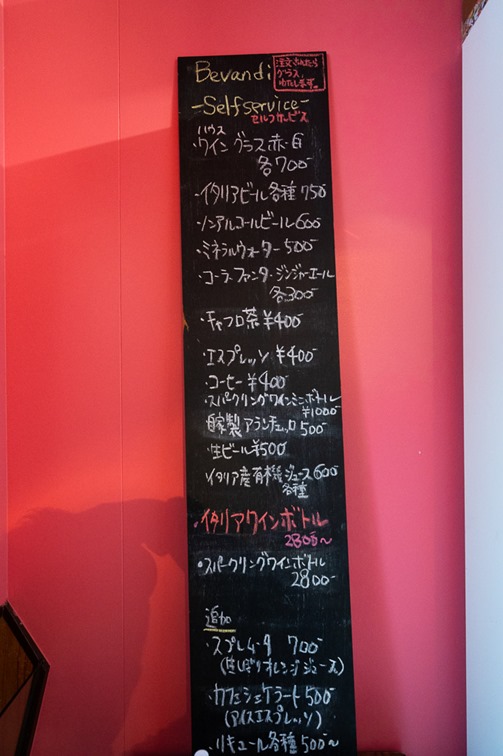 Bevandi
注文されたら
グラス、
わたします。
-Selfservice-
セルフサービス
ハウス
・ワイン グラス 赤・白
各700-
・イタリアビール各種 750
・ノンアルコールビール600-
・ミネラルウォーター 500-
・コーラ・ファンタ・ジンジャーエール
各300-
・キャフロ茶 ¥400-
・エスプレッソ ¥400-
・コーヒー ¥400-
・スパークリングワインミニボトル
¥1000-
自家製アランチェッロ 500-
・生ビール¥500
イタリア産有機ジュース 600-
各種
・イタリアワインボトル
2800~
・スパークリングワインボトル
2800-
追加
・スプレムータ 700-
(生しぼりオレンジジュース)
・カフェシェケラート500-
(アイスエスプレッソ)
・リキュール各種500~